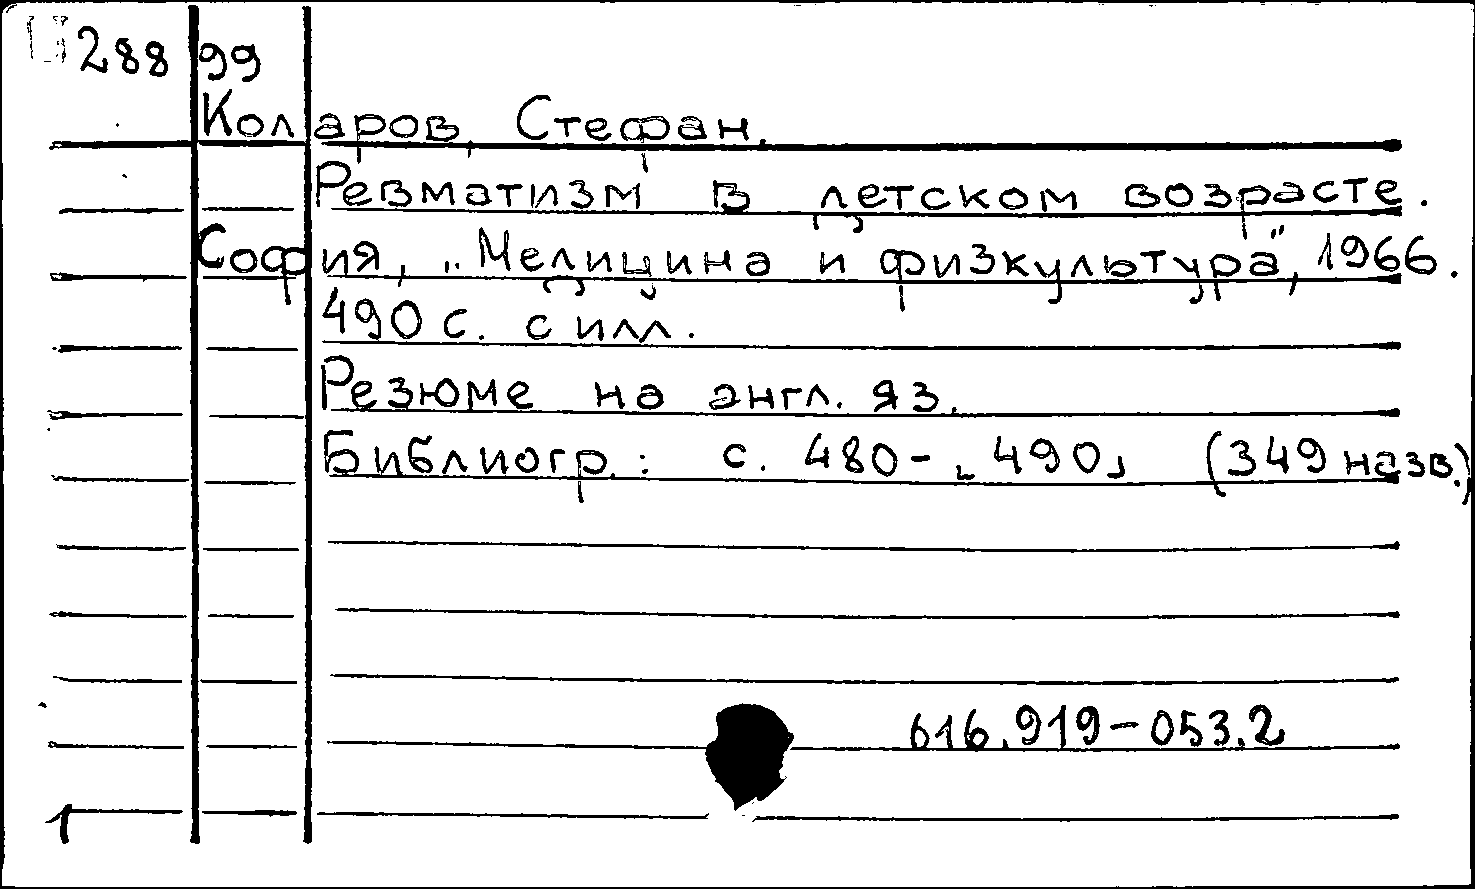 28899
Коларов, Стефан.
Ревматизм в детском возрасте.
София, „Медицина и физкультура", 1966.
490 с. с илл.
Резюме на англ. яз.
Библиогр.: с. 480-[490] (349 назв.)
616.919-053.2
1